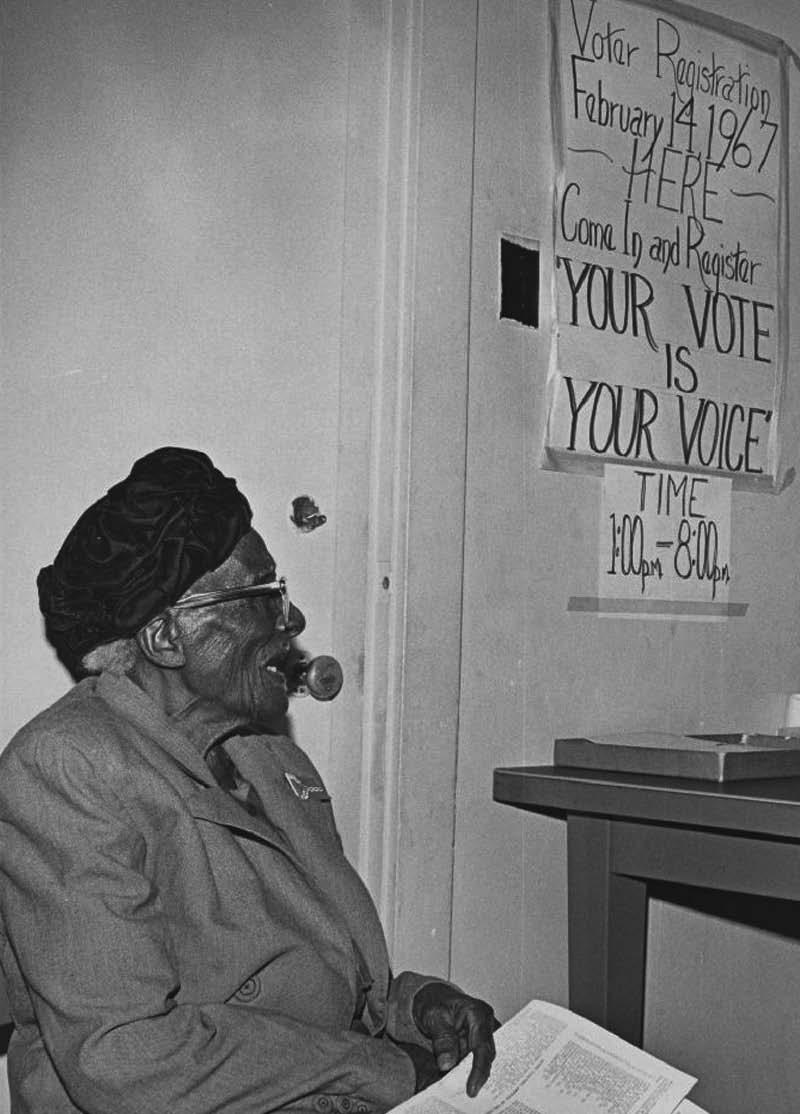 Voter Registration
February 14, 1967
HERE
Come In and Register
"YOUR VOTE
IS
YOUR VOICE"
TIME
1:00pm-8:00pm